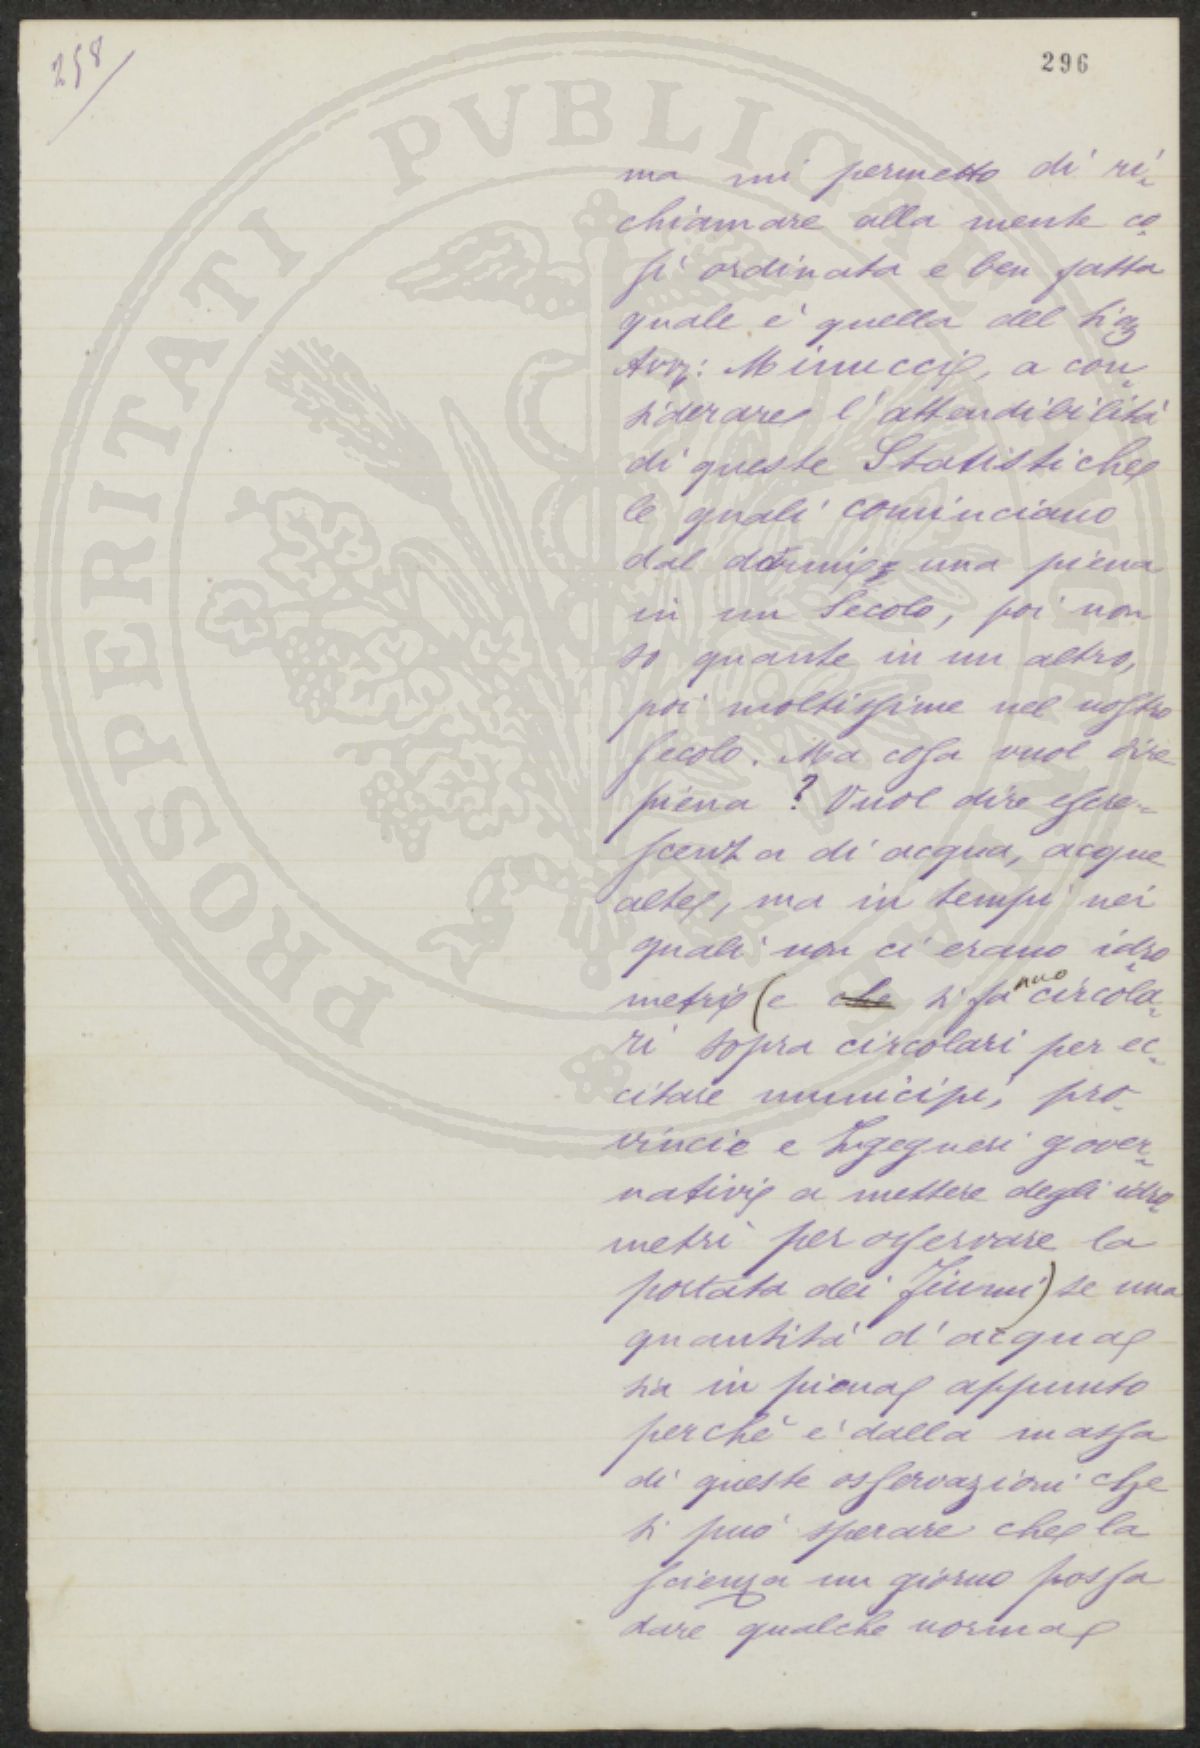 258
296
ma mi permetto di ri-
chiamare alla mente co-
sì ordinata e ben fatta
quale è quella del Sig
Avv: Minucci, a con-
siderare l'attendibilità
di queste Statistiche
le quali cominciano
dal darmi una piena
in un Secolo, poi non
so quante in un altro,
poi moltissime nel nostro
secolo. Ma cosa vuol dire
piena? Vuol dire escre-
scenza di acqua, acque
alte, ma in tempi nei
quali non ci erano idro-
metri (e che si fanno circola-
ri sopra circolari per ec-
citare municipi, pro-
vincie e Ingegneri gover-
nativi a mettere degli idro-
metri per osservare la
portata dei fiumi) se una
quantità d'acqua
sia in piena appunto
perchè è dalla massa
di queste osservazioni che
si può sperare che la
scienza un giorno possa
dare qualche norma
PROSPERITATI PVBLICAE